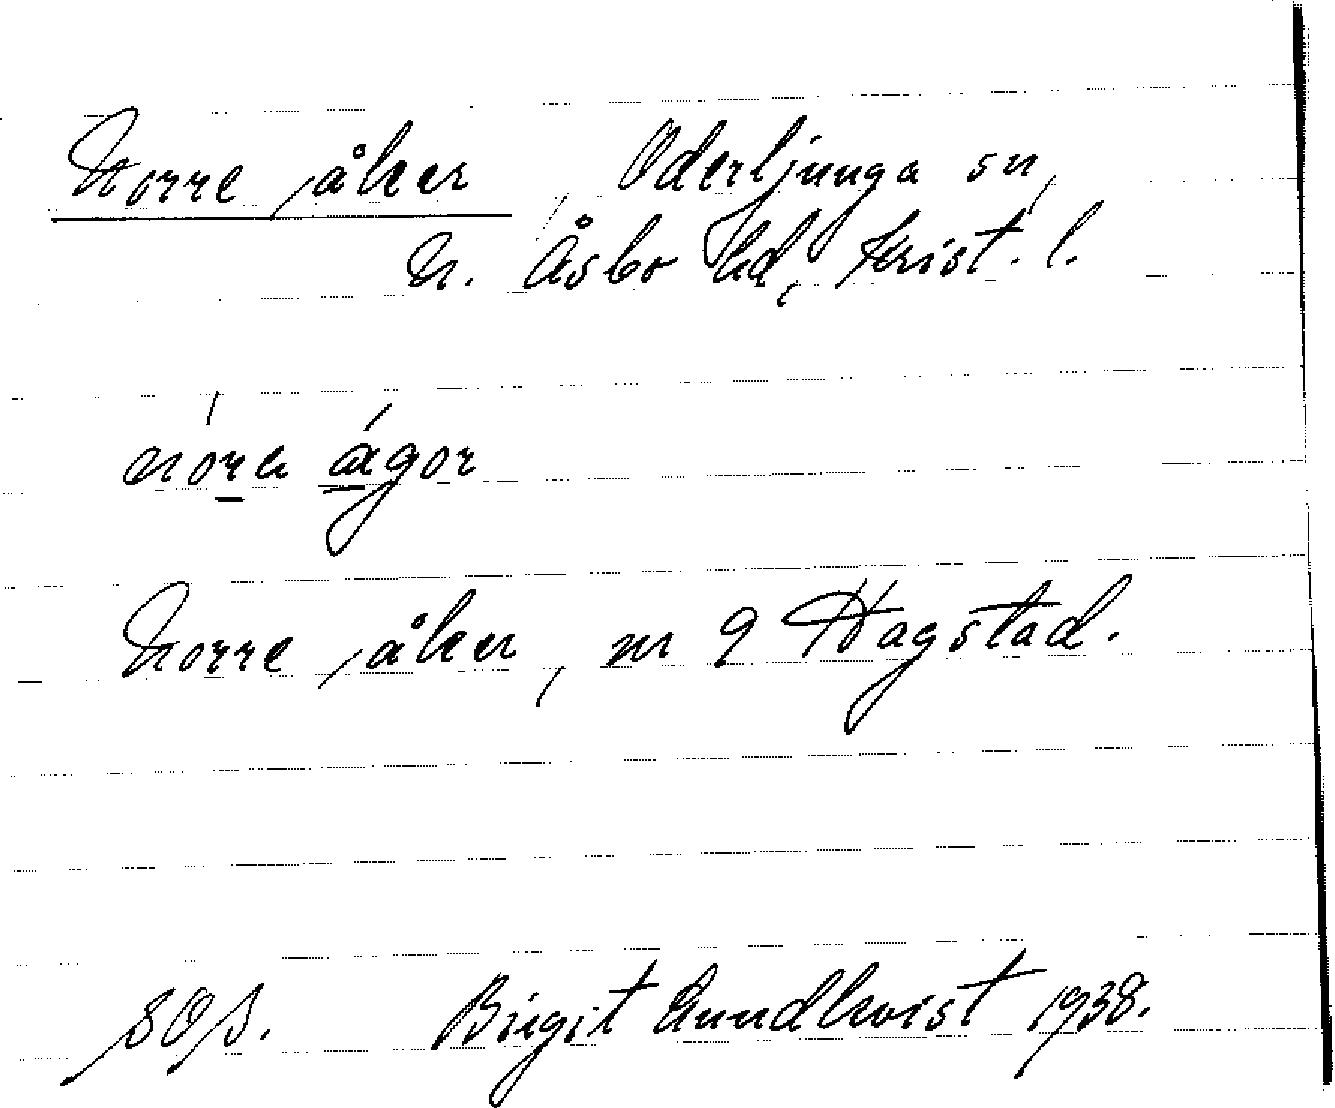 Norre åker, Oderljunga sn,
N. Åsbo hd, Krist. l.
nórə ágor
Norre åker, nr 9 Hagstad.
SOS. Birgit Lundkvist 1938.